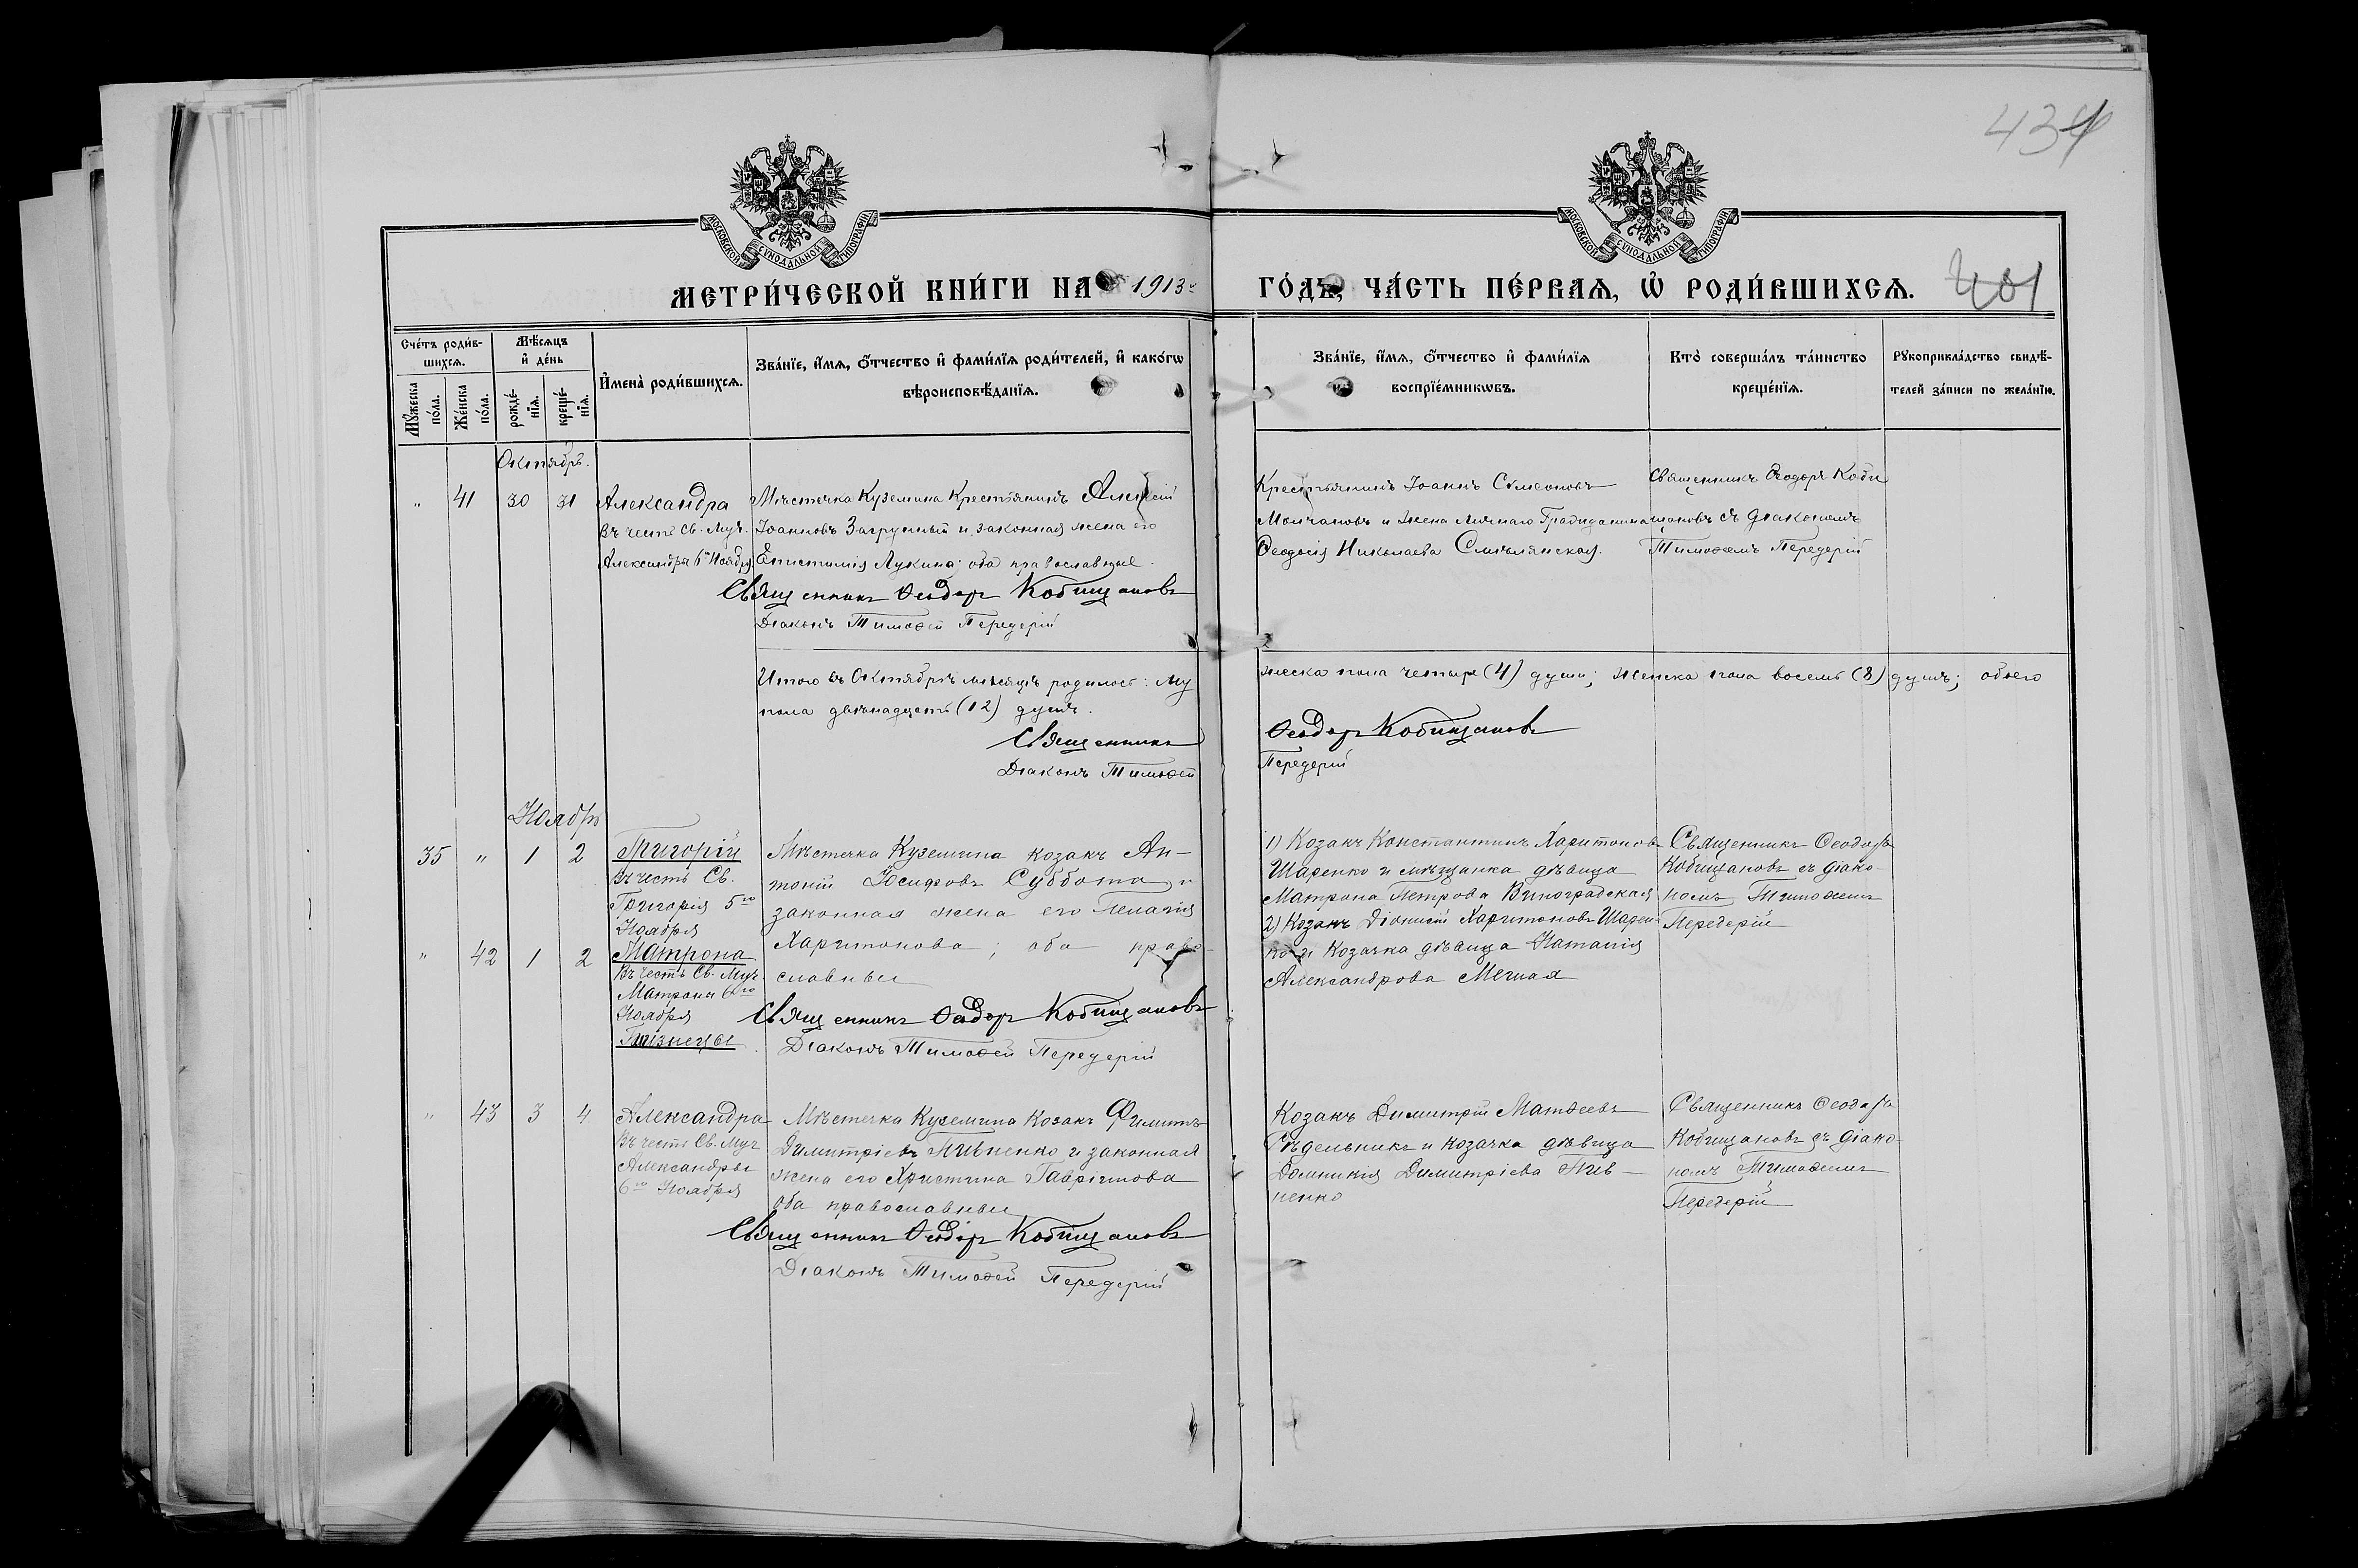 434
МОСКОВСКОЙ СѴНОДАЛЬНОЙ ТИПОГРАФІИ
МОСКОВСКОЙ СѴНОДАЛЬНОЙ ТИПОГРАФІИ
МЕТРИ́ЧЕСКОЙ КНИ́ГИ НА 1913 г.
ГО́ДЪ, ЧА́СТЬ ПЕ́РВАѦ, Ѡ҆ РОДИ́ВШИХСѦ.
401
Сче́тъ роди́в-
шихсѧ.
Мѣ́сѧцъ
и҆ де́нь
Мꙋ́жеска
по́ла.
Же́нска
по́ла.
рожде́-
нїѧ.
креще́-
нїѧ.
И҆мена̀ роди́вшихсѧ.
Зва́нїе, и҆́мѧ, ѻ҆́тчество и҆ фами́лїѧ роди́телей, и҆ како́гѡ
вѣроисповѣ́данїѧ.
Зва́нїе, и҆́мѧ, ѻ҆́тчество и҆ фами́лїѧ
воспрїе́мникѡвъ.
Кто̀ соверша́лъ та́инство
креще́нїѧ.
Рꙋкоприкла́дство свидѣ́-
телей за́писи по жела́нїю.
Октябрь.
" 41 30 31
Александра
Въ честь Св. Муч.
Александры 6го Ноября
Мѣстечка Куземина Крестьянинъ Алексій
Іоанновъ Загрунный и законная жена его
Епистимія Лукина: оба православные.
Священникъ Ѳеодоръ Кобищановъ
Діаконъ Тимоѳей Передерій
Крестьянинъ Іоаннъ Симеоновъ
Молчановъ и жена личнаго Гражданина
Ѳеодосія Николаева Смѣлянская.
Священникъ Ѳеодоръ Коби
щановъ съ діакономъ
Тимоѳеемъ Передерій
Итого въ Октябрѣ мѣсяцѣ родилось: му
жеска пола четыре (4) души; женска пола восемь (8) душъ; обоего
пола двѣнадцать (12) душъ.
Священникъ Ѳеодоръ Кобищановъ
Діаконъ Тимоѳей Передерій
Ноябрь
35 " 1 2
Григорій
Въ честь Св.
Григорія 5го
Ноября
" 42 1 2
Матрона
Въ честь Св. Муч
Матроны 6го
Ноября
Близнецы
Мѣстечка Куземина козакъ Ан-
тоній Іосифовъ Суббота и
законная жена его Пелагія
Харитонова; оба право-
славные
Священникъ Ѳеодоръ Кобищановъ
Діаконъ Тимоѳей Передерій
1) Козакъ Константинъ Харитоновъ
Шаренко и мѣщанка дѣвица
Матрона Петрова Виноградская
2) Козакъ Діонисій Харитоновъ Шарен-
ко и Козачка дѣвица Наталія
Александрова Мечная
Священникъ Ѳеодоръ
Кобищановъ съ діако-
номъ Тимоѳеемъ
Передерій
" 43 3 4
Александра
Въ честь Св. Муч
Александры
6го Ноября
Мѣстечка Куземина Козакъ Филиппъ
Димитріевъ Пивненко и законная
жена его Христина Гавріилова
оба православные
Священникъ Ѳеодоръ Кобищановъ
Діаконъ Тимоѳей Передерій
Козакъ Димитрій Матѳеевъ
Сѣдельникъ и козачка дѣвица
Домникія Димитріева Пив-
ненко
Священникъ Ѳеодоръ
Кобищановъ съ діако
номъ Тимоѳеемъ
Передерій